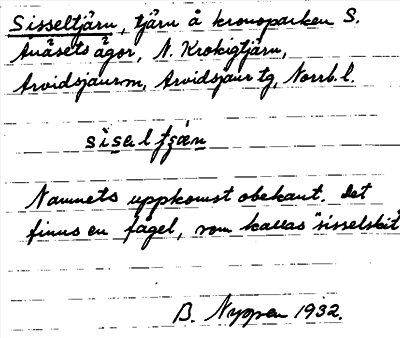 Sisseltjärn, tjärn å kronoparken S.
Auåsets ägor, N. Krokigtjärn,
Arvidsjaurs sn, Arvidsjaur tg, Norrb. l.
sisel tjæn
Namnets uppkomst obekant. Det
finns en fågel, som kallas "sisselskit"
B. Nyppen 1932.